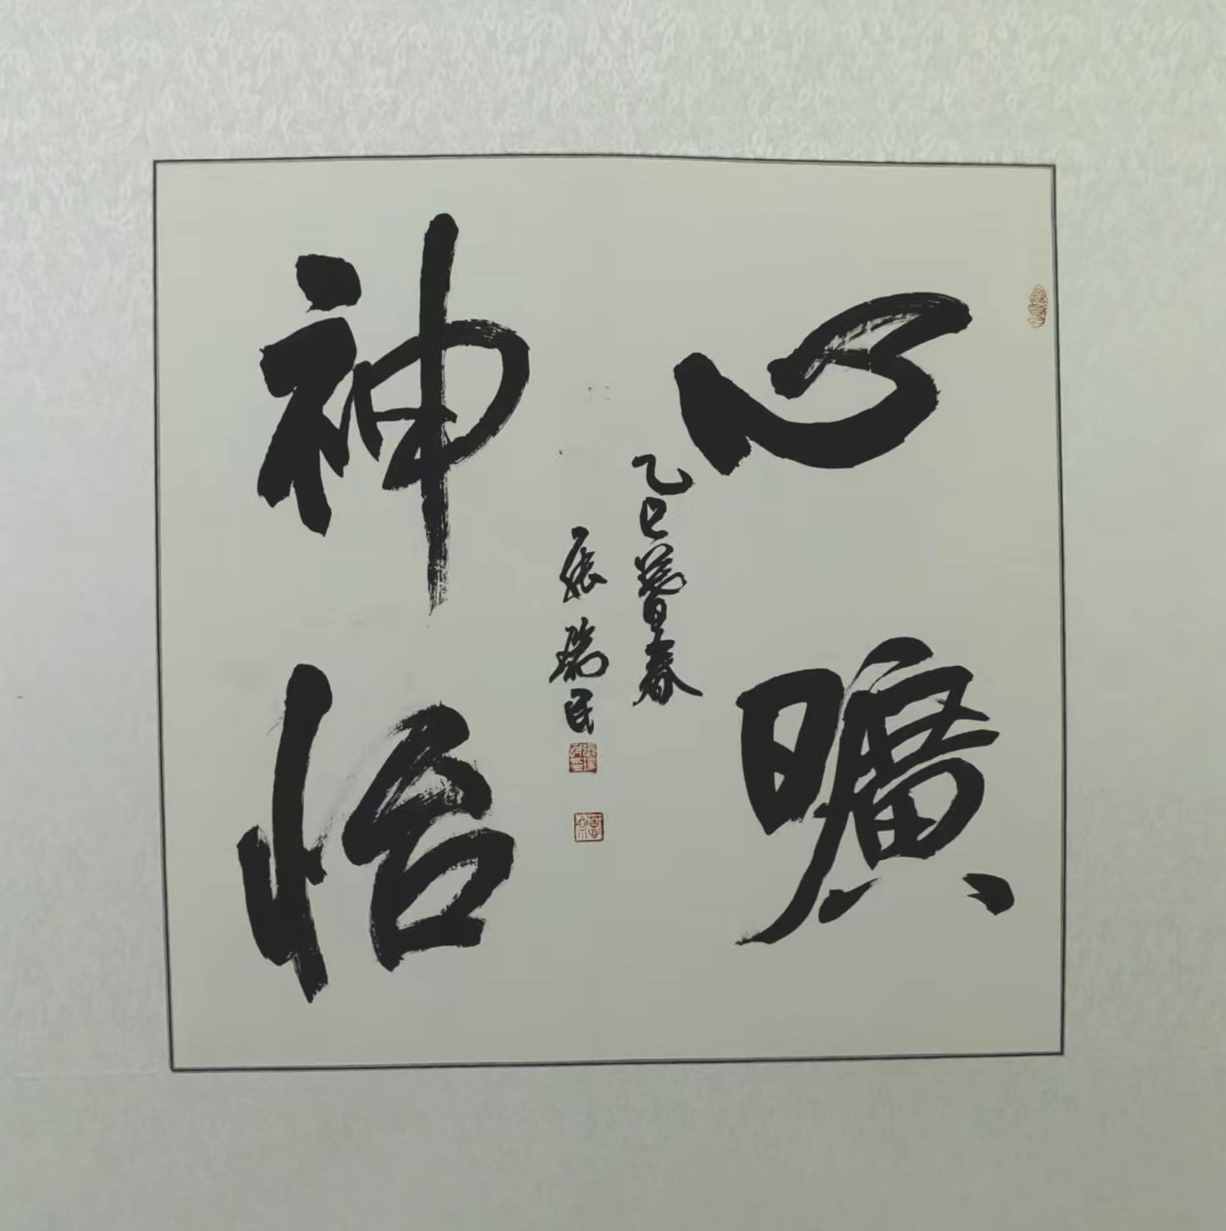 心曠
神怡
乙巳暮春
張瑞民